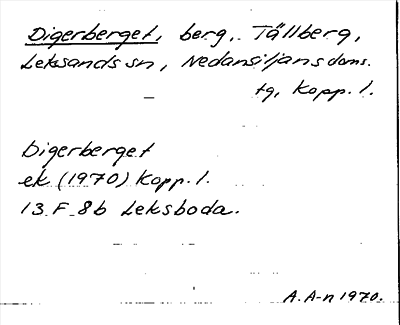 Digerberget, berg, Tällberg,
Leksands sn, Nedansiljans doms.
tg, Kopp. l.
Digerberget
ek (1970) Kopp. l.
13 F 8b Leksboda.
A. A-n 1970.